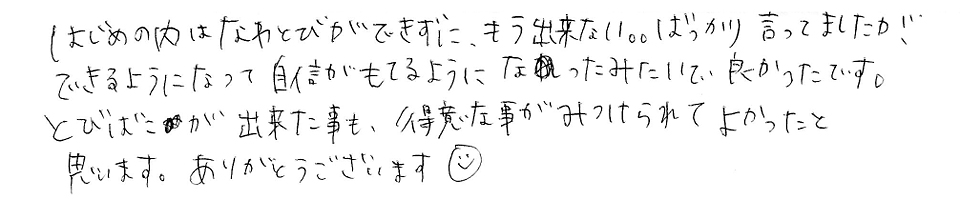 はじめの内はなわとびができずに、もう出来ない。。ばっかり言ってましたが、
できるようになって自信がもてるようになったみたいで、良かったです。
とびばこが出来た事も、得意な事がみつけられてよかったと
思います。ありがとうございます